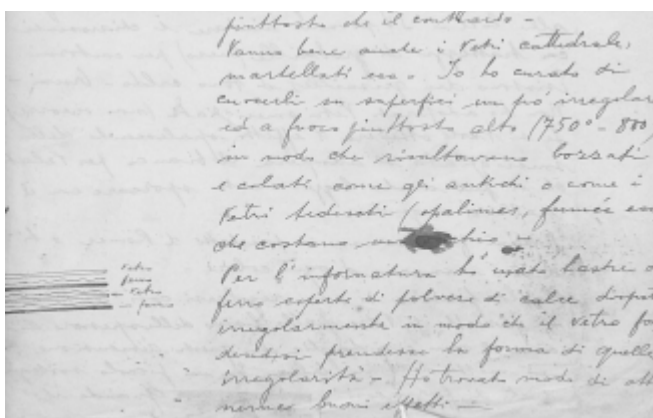 piuttosto che il contrario -
Vanno bene anche i vetri cattedrale,
martellati ecc. Io ho curato di
cuocerli su superfici un po' irregolar
ed a fuoco piuttosto alto (750° - 800)
in modo che risultavano bozzati
e colati come gli antichi o come i
vetri tedeschi (opalines, fumée ecc
che costano un occhio -
Per l'infornatura ho usato lastre
ferro coperte di polvere di calce
irregolarmente in modo che il vetro fo
dendosi prendesse la forma di quelle
irregolarità - Ho trovato modo di ott
nerne buoni effetti -
vetro
ferro
vetro
ferro